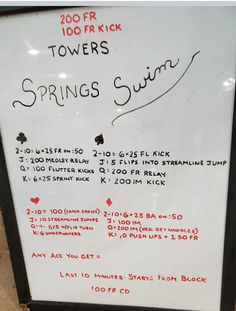 200 FR
100 FR KICK
TOWERS
SPRINGS Swim
2-10 = 6x25 FR ON :50
J: 200 MEDLEY RELAY
Q = 100 FLUTTER KICKS
K = 6x25 SPRINT KICK
2-10 = 6x25 FL KICK
J: 5 FLIPS INTO STREAMLINE JUMP
Q = 200 FR RELAY
K = 200 IM KICK
2-10 = 100 (COACH CHOICE)
J: 10 STREAMLINE JUMPS
W/FLIP TURN
K: 6 UNDERWATERS
2-10 = 6x25 BA ON :50
J: 100 IM
Q = 200 IM (REL. GET NOODLES)
K = PUSH UPS + 50 FR
ANY ACE YOU GET =
LAST 10 MINUTES STARTS FROM BLOCK
100 FR CD